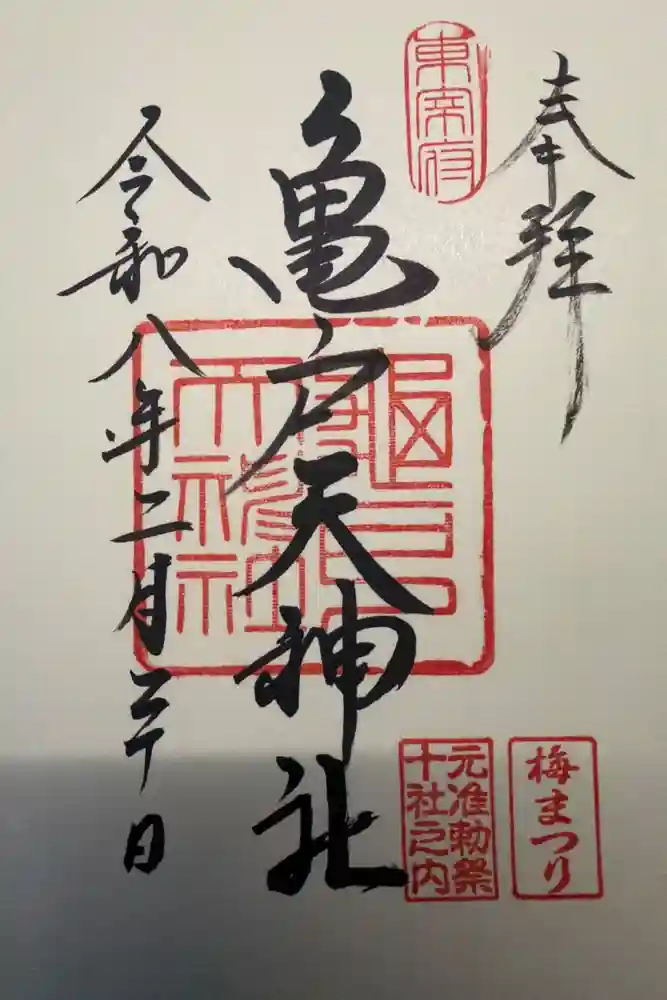 奉拝
梅まつり
東宰府
元准勅祭
十社之内
亀戸天神社
令和八年二月二十日